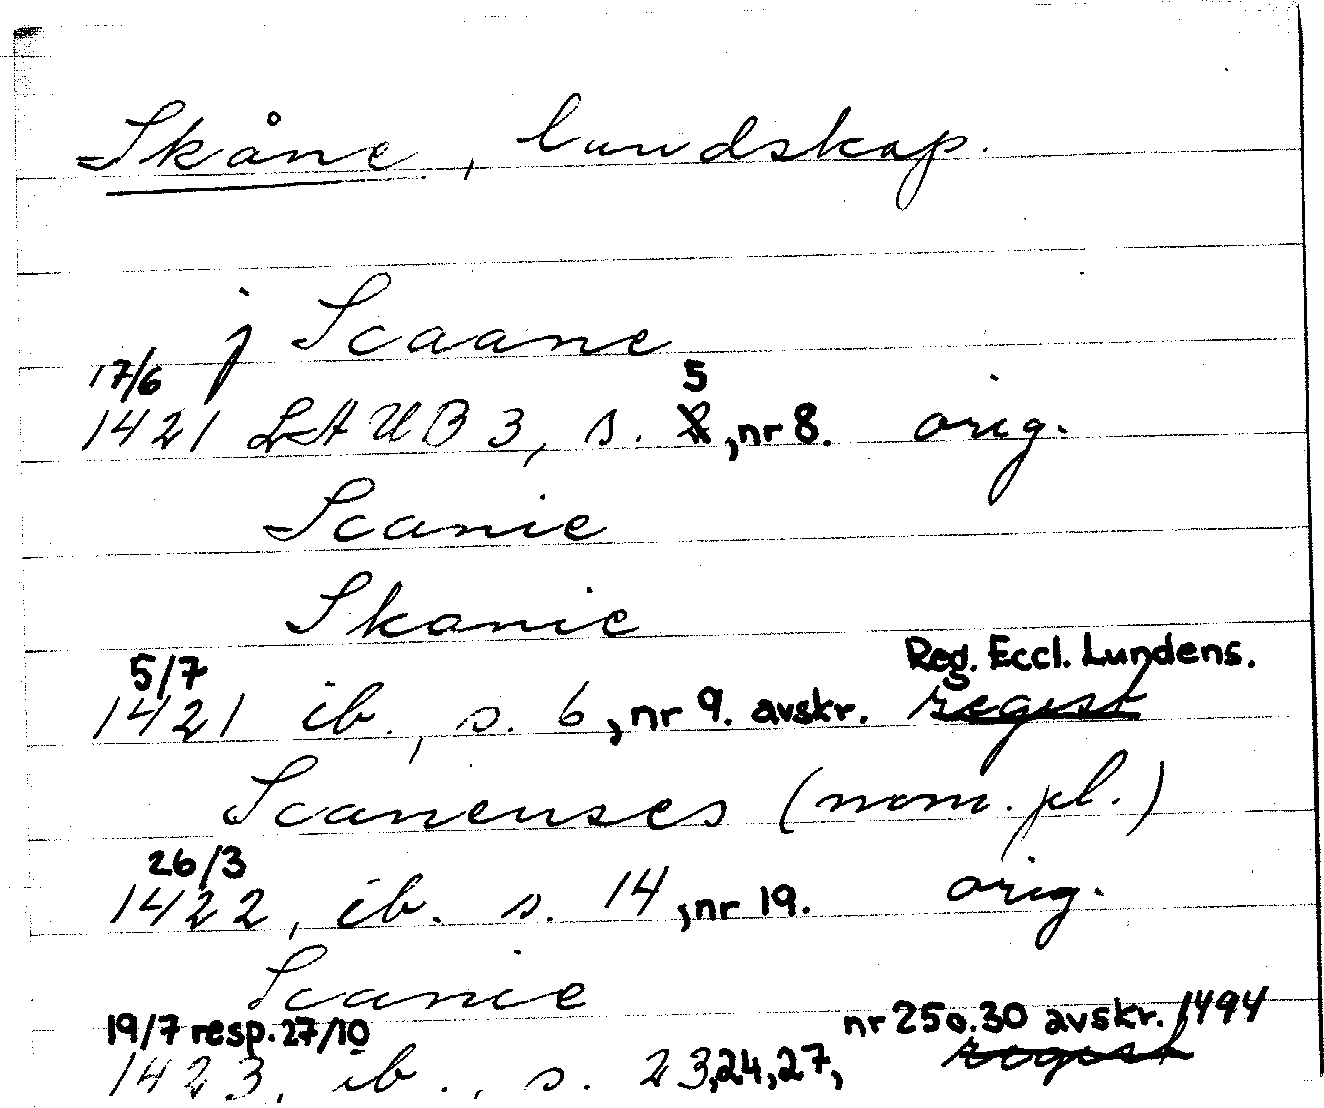 Skåne, landskap.
j Scaane
17/6 5
1421 LAUB 3, s. , nr 8. orig.
Scanie
Skanie
5/7 Reg. Eccl. Lundens.
1421 ib., s. 6, nr 9. avskr. regist
Scanenses (nom. pl.)
26/3
1422, ib. s. 14, nr 19. orig.
Scanie
19/7 resp. 27/10 nr 25 o. 30 avskr. 1494
1423, ib., s. 23,24,27, regist